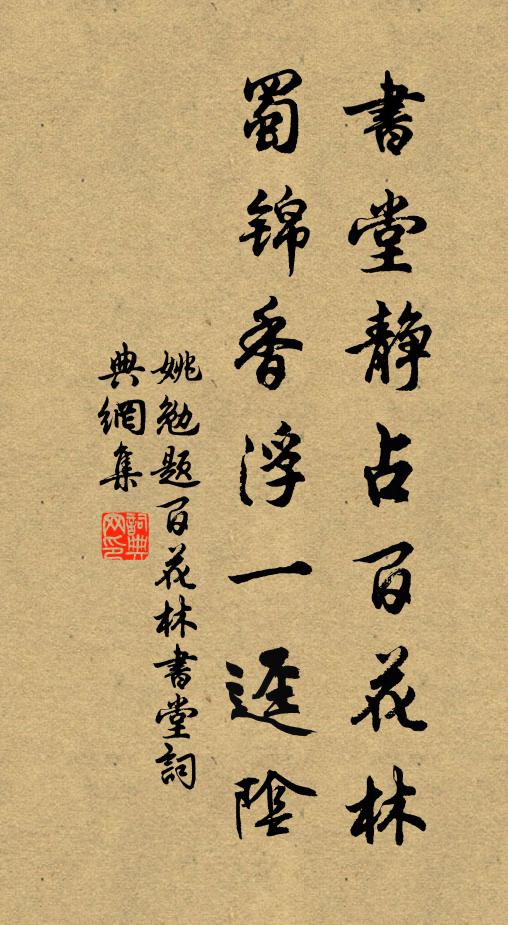 書堂静占百花林
蜀锦香浮一逕陰
姚勉题百花林書堂詞
典網集
詞典
网印